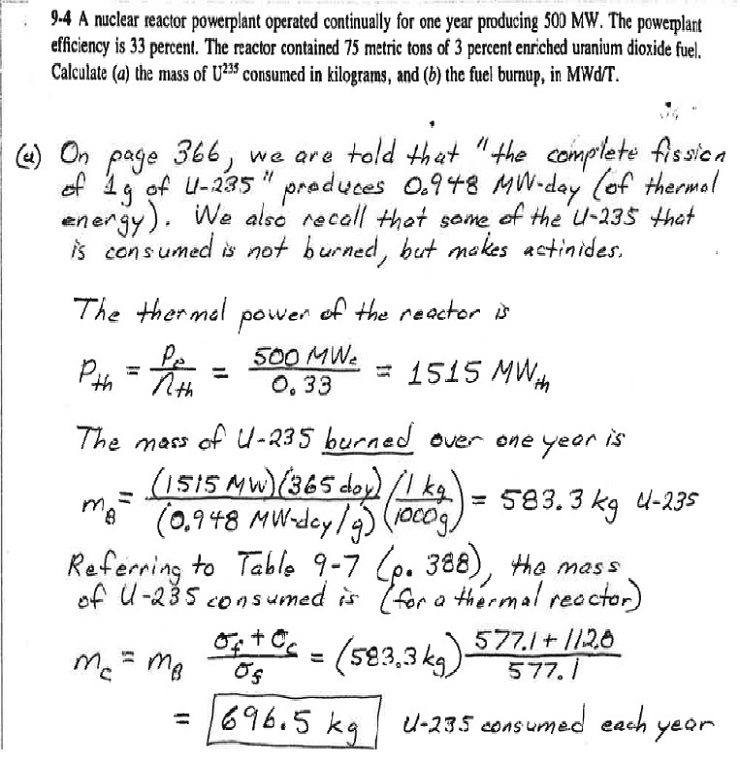 9-4 A nuclear reactor powerplant operated continually for one year producing 500 MW. The powerplant
efficiency is 33 percent. The reactor contained 75 metric tons of 3 percent enriched uranium dioxide fuel.
Calculate (a) the mass of U²³⁵ consumed in kilograms, and (b) the fuel burnup, in MWd/T.
(a) On page 366, we are told that "the complete fission
of 1g of U-235" produces 0.948 MW-day (of thermal
energy). We also recall that some of the U-235 that
is consumed is not burned, but makes actinides.
The thermal power of the reactor is
P_th = P_e / η_th = 500 MWe / 0.33 = 1515 MW_th
The mass of U-235 burned over one year is
m_B = (1515 MW)(365 day) / (0.948 MW-day/g) (1 kg / 1000g) = 583.3 kg U-235
Referring to Table 9-7 (p. 388), the mass
of U-235 consumed is (for a thermal reactor)
m_c = m_B (σ_f + σ_c) / σ_f = (583.3 kg) (577.1 + 112.0) / 577.1
= 696.5 kg U-235 consumed each year